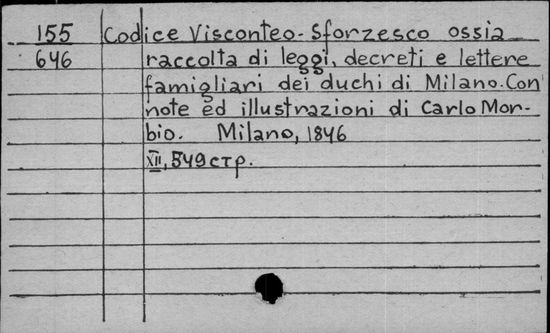 155 Codice Visconteo-Sforzesco ossia
646 raccolta di leggi, decreti e lettere
famigliari dei duchi di Milano. Con
note ed illustrazioni di Carlo Mor-
bio. Milano, 1846
XII, 549 стр.